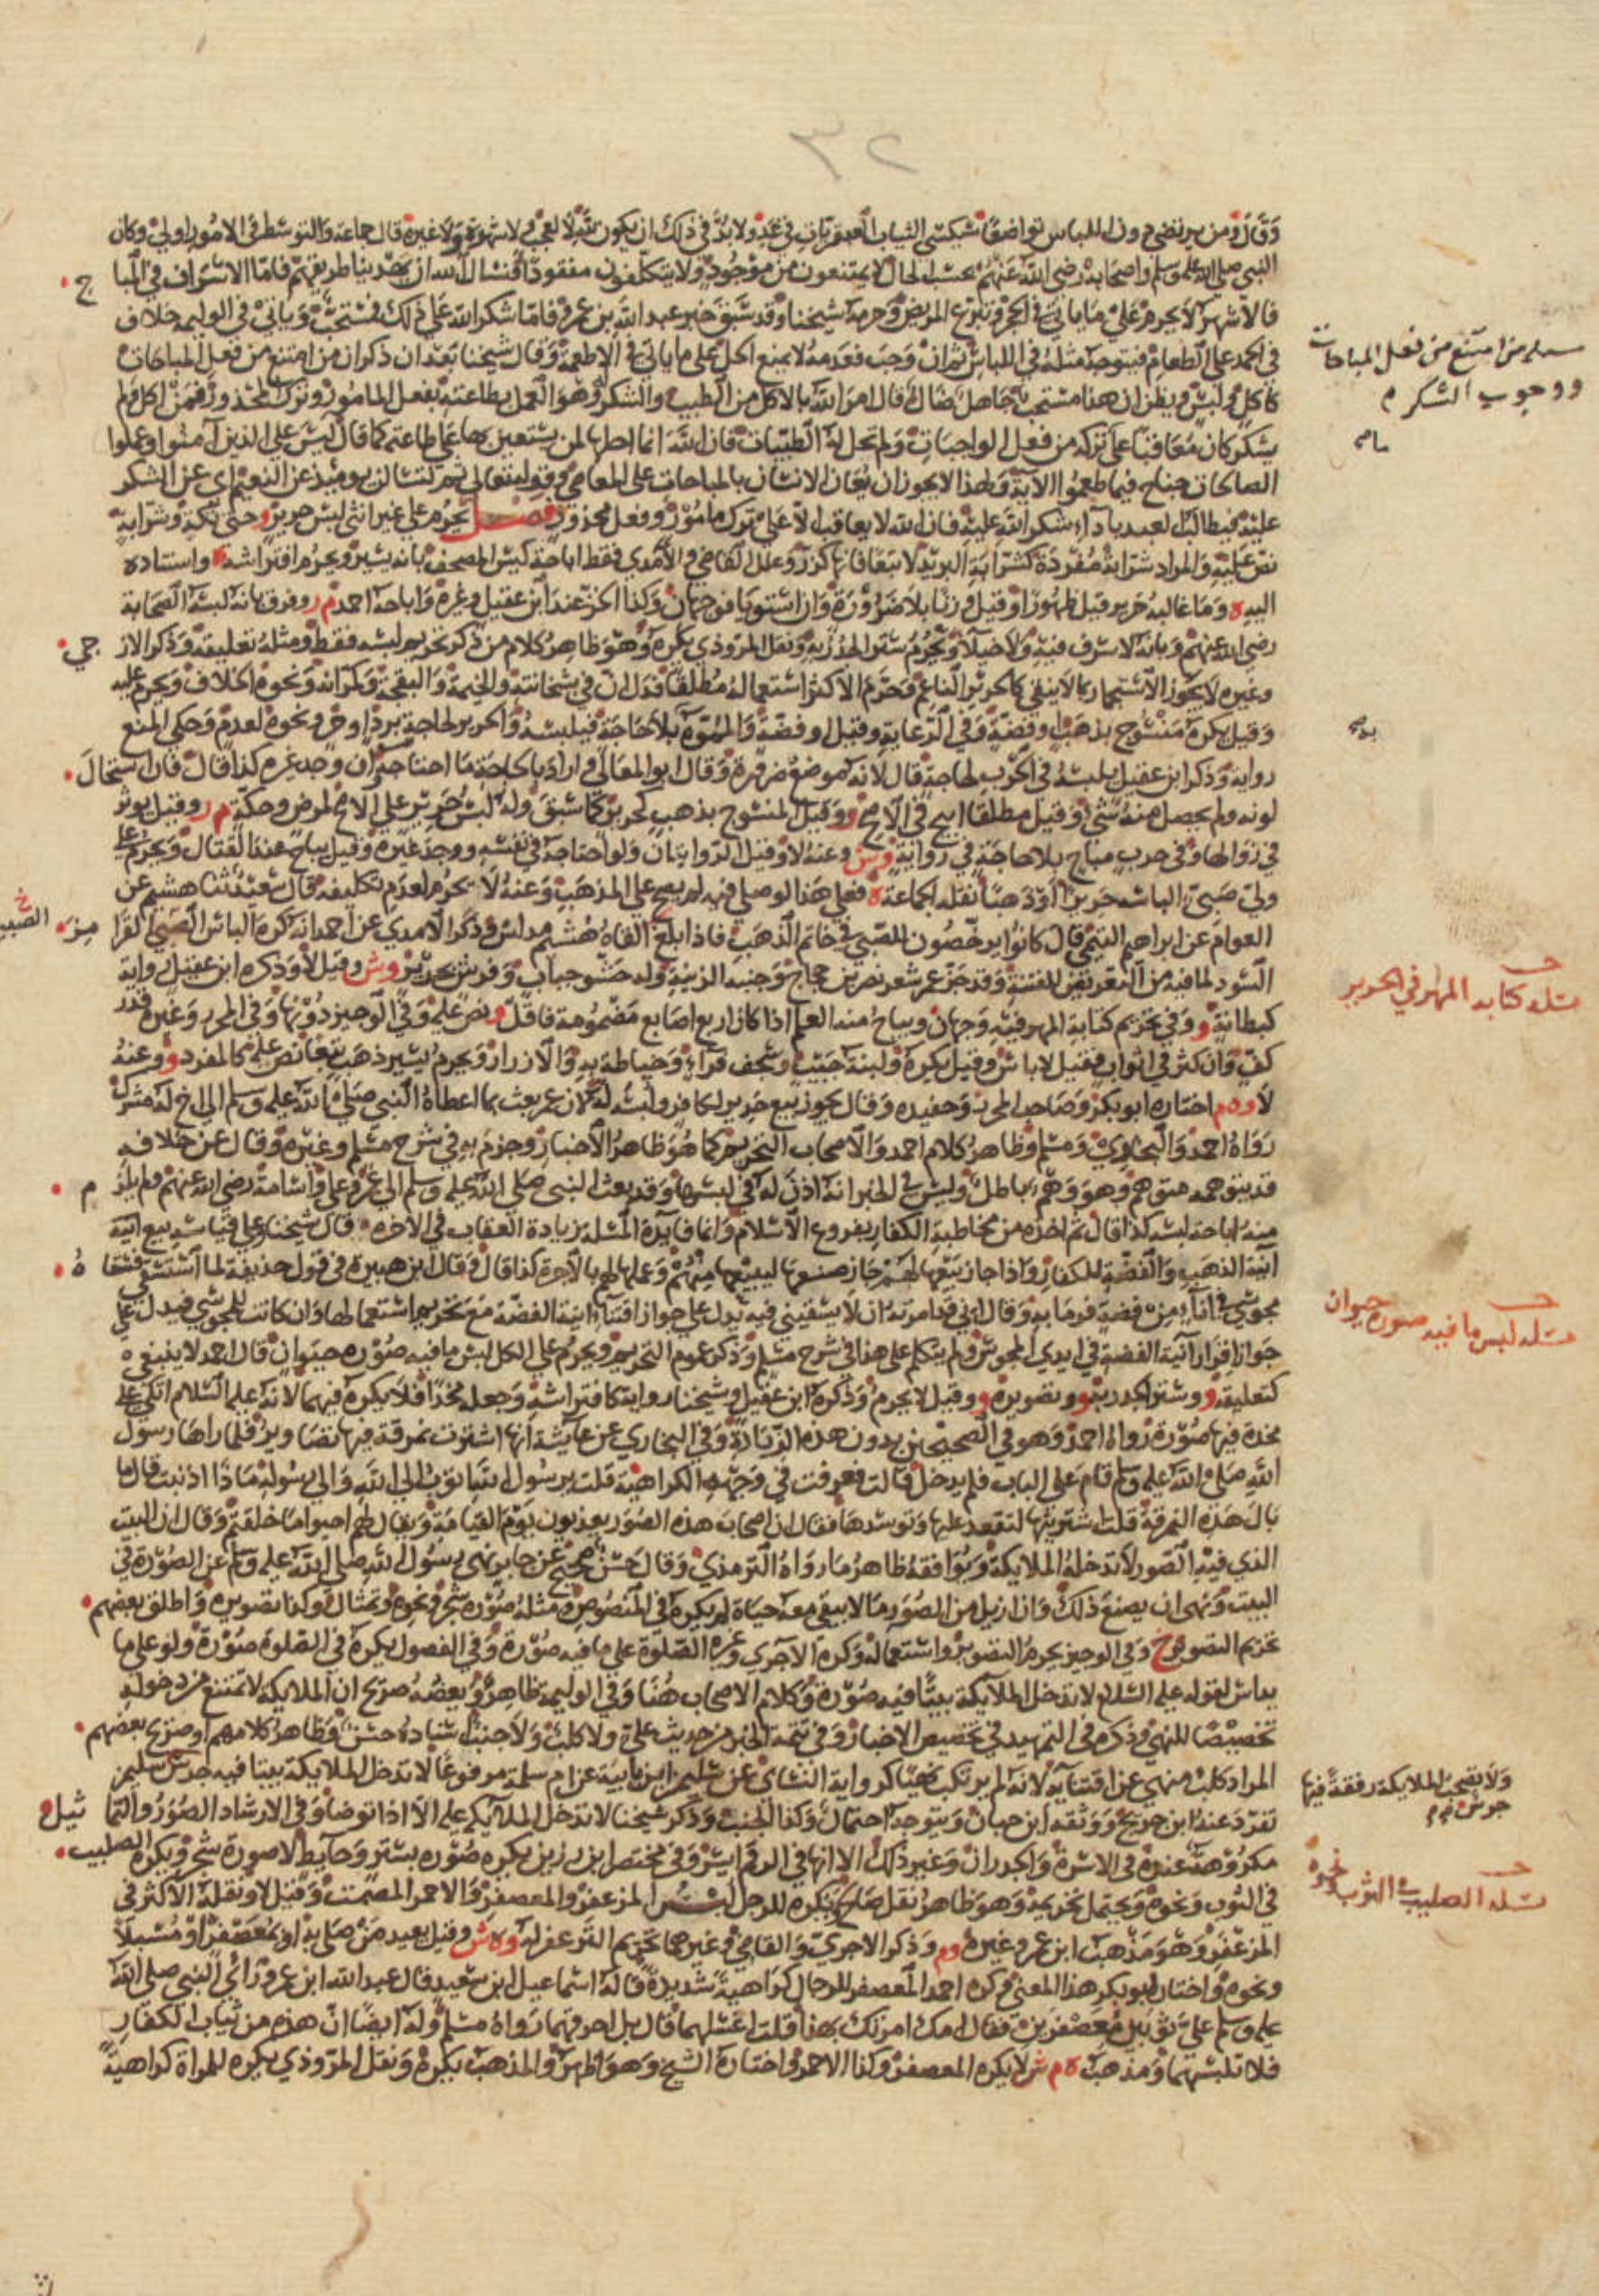 ٣٢
وقال ومن يرتضي دون اللباس تواضعا سيكسى الثياب العبقريات في غد ولا بد في ذلك ان يكون لله لا لعجب ولا شهرة ولا غيره قال جماعة والتوسط في الامور اولى وكان
النبي صلى الله عليه وسلم واصحابه رضي الله عنهم بحسب الحال لا يمتنعون من موجود ولا يتكلفون مفقودا فنسال الله ان يهدينا طريقهم فاما الاسراف في المبا ح
فالاشهر لا يحرم على ما ياتي في الحجر وتبرع المريض وحرمه شيخنا وقد سبق خبر عبد الله بن عمرو فاما شكر الله على ذلك فمستحب وياتي في الوليمة خلاف
في الحمد على الطعام فيتوجه مثله في اللباس ثم ان وجب فعدمه لا يمنع الحل على ما ياتي في الاطعمة وقال شيخنا بعد ان ذكر ان من امتنع من فعل المباحات
كاكل ولبس ويظن ان هذا مستحب جاهل ضال قال امر الله بالاكل من الطيب والشكر وهو العمل بطاعته بفعل المامور وترك المحذور فمن اكل ولم
يشكر كان معاقبا على تركه من فعل الواجبات ولم تحل له الطيبات فان الله انما احلها لمن يستعين بها على طاعته كما قال ليس على الذين آمنوا وعملوا
الصالحات جناح فيما طعموا الآية ولهذا لا يجوز ان يعان الانسان بالمباحات على المعاصي وقوله تعالى ثم لتسالن يومئذ عن النعيم اي عن الشكر
عليه فيطالب العبد باداء شكر الله عليه فان الله لا يعاقب الا على ترك مامور وفعل محذور فصل يحرم على غير انثى لبس حرير و حتى تكة وشرابة
نص عليه والمراد شرابة مفردة كشرابة البريد لا تبعا فانها كزر وعلل القاضي والآمدي فقط اباحة كيس المصحف بانه يسير ويحرم افتراشه ه واستناده
اليه ه وما غالبه حرير قيل ظهورا وقيل وزنا بلا ضرورة وان استويا فوجهان وكذا الخز عند ابن عقيل وغيره واباحه احمد م ر وفرق بانه لبسه الصحابة
رضي الله عنهم وبانه لا سرف فيه ولا خيلاء ويحرم ستر الجدر به ونقل المروذي يكره وهو ظاهر كلام من ذكر تحريم لبسه فقط ومثله تعليقه وذكر الاز جي
وغيره لا يجوز الاستجمار بما لا ينقي كالحرير الناعم وحرم الاكثر استعماله مطلقا فدل ان في بشخانته والخيمة والبقجة وكمرانه ونحوه الخلاف ويحرم عليه
وقيل يكره منسوج بذهب او فضة وفي الرعاية وقيل او فضة والمموه بلا حاجة فيلبسه والحرير لحاجة برد او حر ونحوه لعدم وحكي المنع
رواية وذكر ابن عقيل يلبسه في الحرب لحاجة قال لانه موضع ضرورة وقال ابو المعالي واراد بالحاجة ما احتاجه وان وجد غيره كذا قال فان استحال
لونه ولم يحصل منه شيء وقيل مطلقا ابيح في الاصح و وقيل المنسوج بذهب كحرير كما سبق وله لبس حرير على الاصح لمرض وحكة م ر وقيل يوثر
في زوالها وفي حرب مباح بلا حاجة في رواية وش وعنه لا وقيل الروايتان ولو احتاجه في نفسه ووجد غيره وقيل يباح عند القتال ويحرم على
ولي صبي الباسه حريرا او ذهبا نقله الجماعة ه فعلى هذا لو صلى فيه لم يصح على المذهب وعنه لا يحرم لعدم تكليفه قال سعيد ثنا هشيم عن
العوام عن ابراهيم التيمي قال كانوا يرخصون للصبي في خاتم الذهب فاذا بلغ القاه هشيم مدلس وذكر الآمدي عن احمد انه كره الباس الصبي القرا مز
السود لما فيه من التعريض للفتنة وقد جز عمر شعر نصر بن حجاج وجنبه الزينة وله حشو جباب وفرش بحرير وش وقيل لا وذكره ابن عقيل رواية
كبطانة و وفي تحريم كتابة المهر فيه وجهان ويباح منه العلم اذا كان اربع اصابع مضمومة فاقل و نص عليه وفي الوجيز دونها وفي المحرر وغيره قدر
كف وان كثر في اثواب فقيل لا باس وقيل يكره ولبنة جيب وسجف فراء وخياطة به والازرار ويحرم يسير ذهب تبعا نص عليه كالمفرد و وعنه
لا وه م اختاره ابو بكر وصاحب المحرر وحفيده وقال يجوز بيع حرير لكافر ولبسه له لان عمر بعث بما اعطاه النبي صلى الله عليه وسلم الى اخ له مشرك
رواه احمد والبخاري ومسلم وظاهر كلام احمد والاصحاب التحريم كما هو ظاهر الاخبار وجزم به في شرح مسلم وغيره وقال عن خلافه
قد يتوهمه متوهم وهو وهم باطل وليس في الخبر انه اذن له في لبسها وقد بعث النبي صلى الله عليه وسلم الى عمر وعلي واسامة رضي الله عنهم ولم يلز م
منه اباحة لبسه كذا قال ثم اخذه من مخاطبة الكفار بفروع الاسلام وانما فايدة المسئلة زيادة العقاب في الاخرة قال شيخنا وعلى قياسه بيع آنية
آنية الذهب والفضة للكفار واذا جاز بيعها لهم جاز صنعها لبيعها منهم وعملها لهم بالاجرة كذا قال وقال ابن هبيرة في قول حذيفة لما استسقى فسقا ه
مجوسي في اناء من فضة فرماه به وقال اني قد امرته ان لا يسقيني فيه يدل على جواز اقتناء آنية الفضة مع تحريم استعمالها وان كانت للمجوسي فيدل على
جواز اقرار آنية الفضة في ايدي المجوس ولم يتكلم على هذا في شرح مسلم وذكر عموم التحريم ويحرم على الكل لبس ما فيه صورة حيوان قال احمد لا ينبغي ه
كتعليقه و وستر الجدر به و وتصويره و وقيل لا يحرم وذكره ابن عقيل وشيخنا رواية كافتراشه وجعله مخدا فلا يكره فيهما لانه عليه السلام اتكى على
مخدة فيها صورة رواه احمد وهو في الصحيحين بدون هذه الزيادة وفي البخاري عن عائشة انها اشترت نمرقة فيها تصاوير فلما راها رسول
الله صلى الله عليه وسلم قام على الباب فلم يدخل قالت فعرفت في وجهه الكراهية قلت يرسول الله اتوب الى الله والى رسوله ماذا اذنبت قال ما
بال هذه النمرقة قلت اشتريتها لتقعد عليها وتوسدها فقال ان اصحاب هذه الصور يعذبون يوم القيامة ويقال لهم احيوا ما خلقتم وقال ان البيت
الذي فيه الصور لا تدخله الملايكة ويوافقه ظاهر ما رواه الترمذي وقال حسن صحيح عن جابر نهى رسول الله صلى الله عليه وسلم عن الصورة في
البيت ونهى ان يصنع ذلك وان ازيل من الصور ما لا يبقى معه حياة لم يكره في المنصوص ومثله صورة شجر ونحوه وتمثال وكذا تصويره واطلق بعضهم
تحريم التصوير خ وفي الوجيز يحرم التصوير واستعماله وكره الآجري وغيره الصلوة على ما فيه صورة وفي الفصول يكره في الصلوة صورة ولو على ما
يداس لقوله عليه السلام لا تدخل الملايكة بيتا فيه صورة وكلام الاصحاب هنا وفي الوليمة ظاهر وبعضه صريح ان الملايكة لا تمتنع من دخوله
تخصيصا للنهي وذكره في التمهيد في تخصيص الاخبار وفي تتمة الخبر من حديث علي ولا كلب ولا جنب اسناده حسن وظاهر كلامهم او صريح بعضهم
المراد كلب منهي عن اقتنايه لانه لم يرتكب نهيا كرواية النسائي عن سليمن ابن بابيه عن ام سلمة مرفوعا لا تدخل الملايكة بيتا فيه جرس سليمن
تفرد عنه ابن جريج ووثقه ابن حبان ويتوجه احتمال وكذا الجنب وذكر شيخنا لا تدخل الملايكة عليه الا اذا توضا وفي الارشاد الصور والتما ثيل
مكروهة عنده في الاسرة والجدران وغير ذلك الا انها في الرقم ايسر وفي مختصر ابن رزين يكره صورة بستر وحايط لا صورة شجر ويكره الصليب
في الثوب ونحوه ويحتمل تحريمه وهو ظاهر نقل صالح ويكره للرجل لبس المزعفر والمعصفر والاحمر المصمت وقيل لا ونقله الاكثر في
المزعفر وهو مذهب ابن عمر وغيره وم وذكر الاجري والقاضي وغيرهما تحريم التزعفر له وه ش وقيل يعيد من صلى به او بمعصفر او مسبلا
ونحوه واختاره ابو بكر هذا المعنى وكره احمد المعصفر للرجال كراهية شديدة قاله اسماعيل ابن سعيد قال عبد الله ابن عمرو رأى النبي صلى الله
عليه وسلم علي ثوبين معصفرين فقال امك امرتك بهذا قلت اغسلهما قال بل احرقهما رواه مسلم وله ايضا ان هذه من ثياب الكفار
فلا تلبسها ومذهب ه م ش لا يكره المعصفر وكذا الاحمر واختاره الشيخ وهو اظهر والمذهب يكره ونقل المروذي يكره للمراة كراهية
مسله من امتنع من فعل المباحات
ووجوب الشكر
مسلة كتابه المهر في الحرير
مسله لبس ما فيه صورة حيوان
ولا تصحب الملايكة رفقة فيها
جرس
مسلة الصليب في الثوب ونحوه